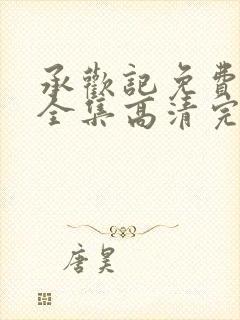 承歡記免費
全集高清完
唐昊